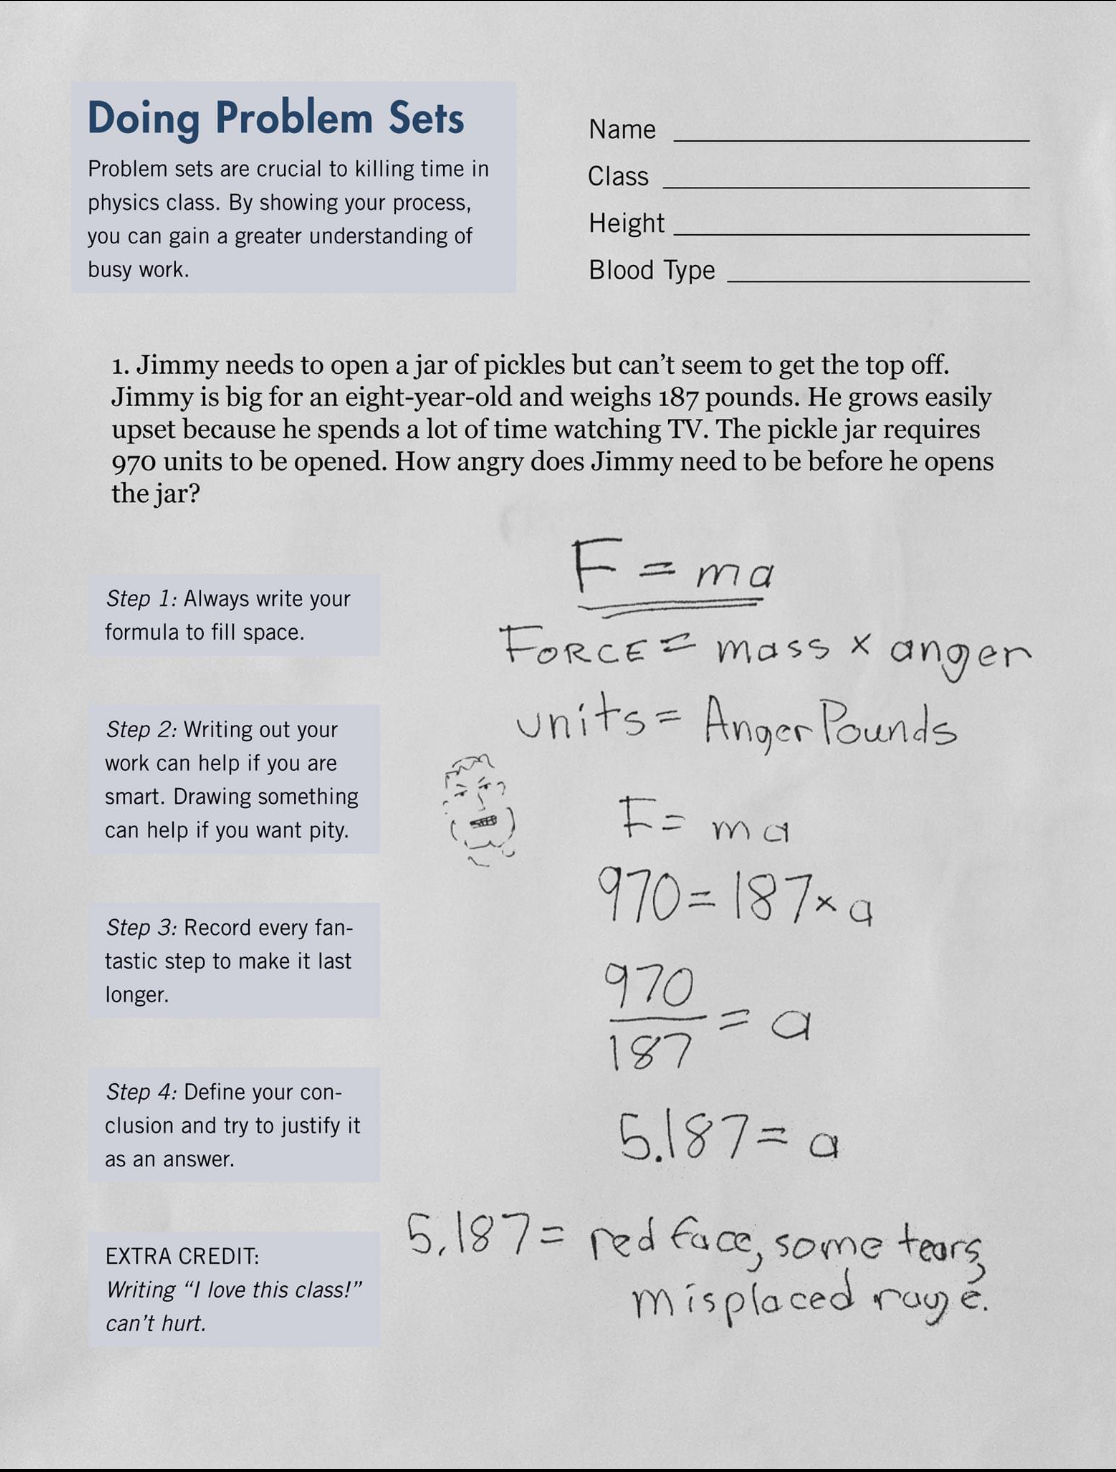 Doing Problem Sets
Problem sets are crucial to killing time in
physics class. By showing your process,
you can gain a greater understanding of
busy work.
Name
Class
Height
Blood Type
1. Jimmy needs to open a jar of pickles but can’t seem to get the top off.
Jimmy is big for an eight-year-old and weighs 187 pounds. He grows easily
upset because he spends a lot of time watching TV. The pickle jar requires
970 units to be opened. How angry does Jimmy need to be before he opens
the jar?
Step 1: Always write your
formula to fill space.
F = ma
FORCE = mass x anger
units = Anger Pounds
Step 2: Writing out your
work can help if you are
smart. Drawing something
can help if you want pity.
F = ma
970 = 187 x a
Step 3: Record every fan-
tastic step to make it last
longer.
970
187 = a
Step 4: Define your con-
clusion and try to justify it
as an answer.
5.187 = a
EXTRA CREDIT:
Writing “I love this class!”
can’t hurt.
5.187 = red face, some tears,
misplaced rage.